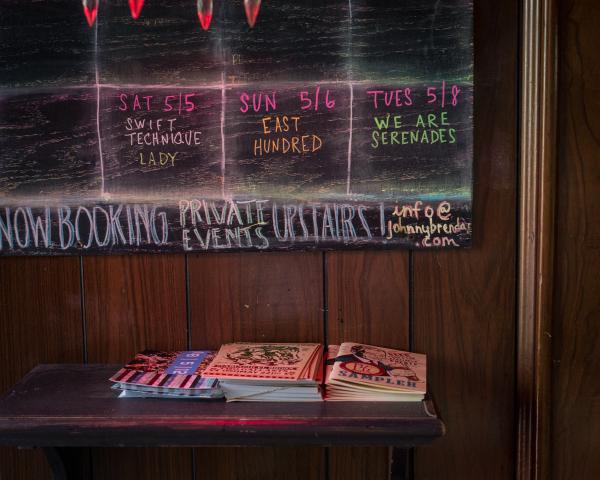 SAT 5/5
SWIFT
TECHNIQUE
LADY
SUN 5/6
EAST
HUNDRED
TUES 5/8
WE ARE
SERENADES
NOW BOOKING PRIVATE EVENTS UPSTAIRS!
info@
johnnybrendas
.com
SAMPLER